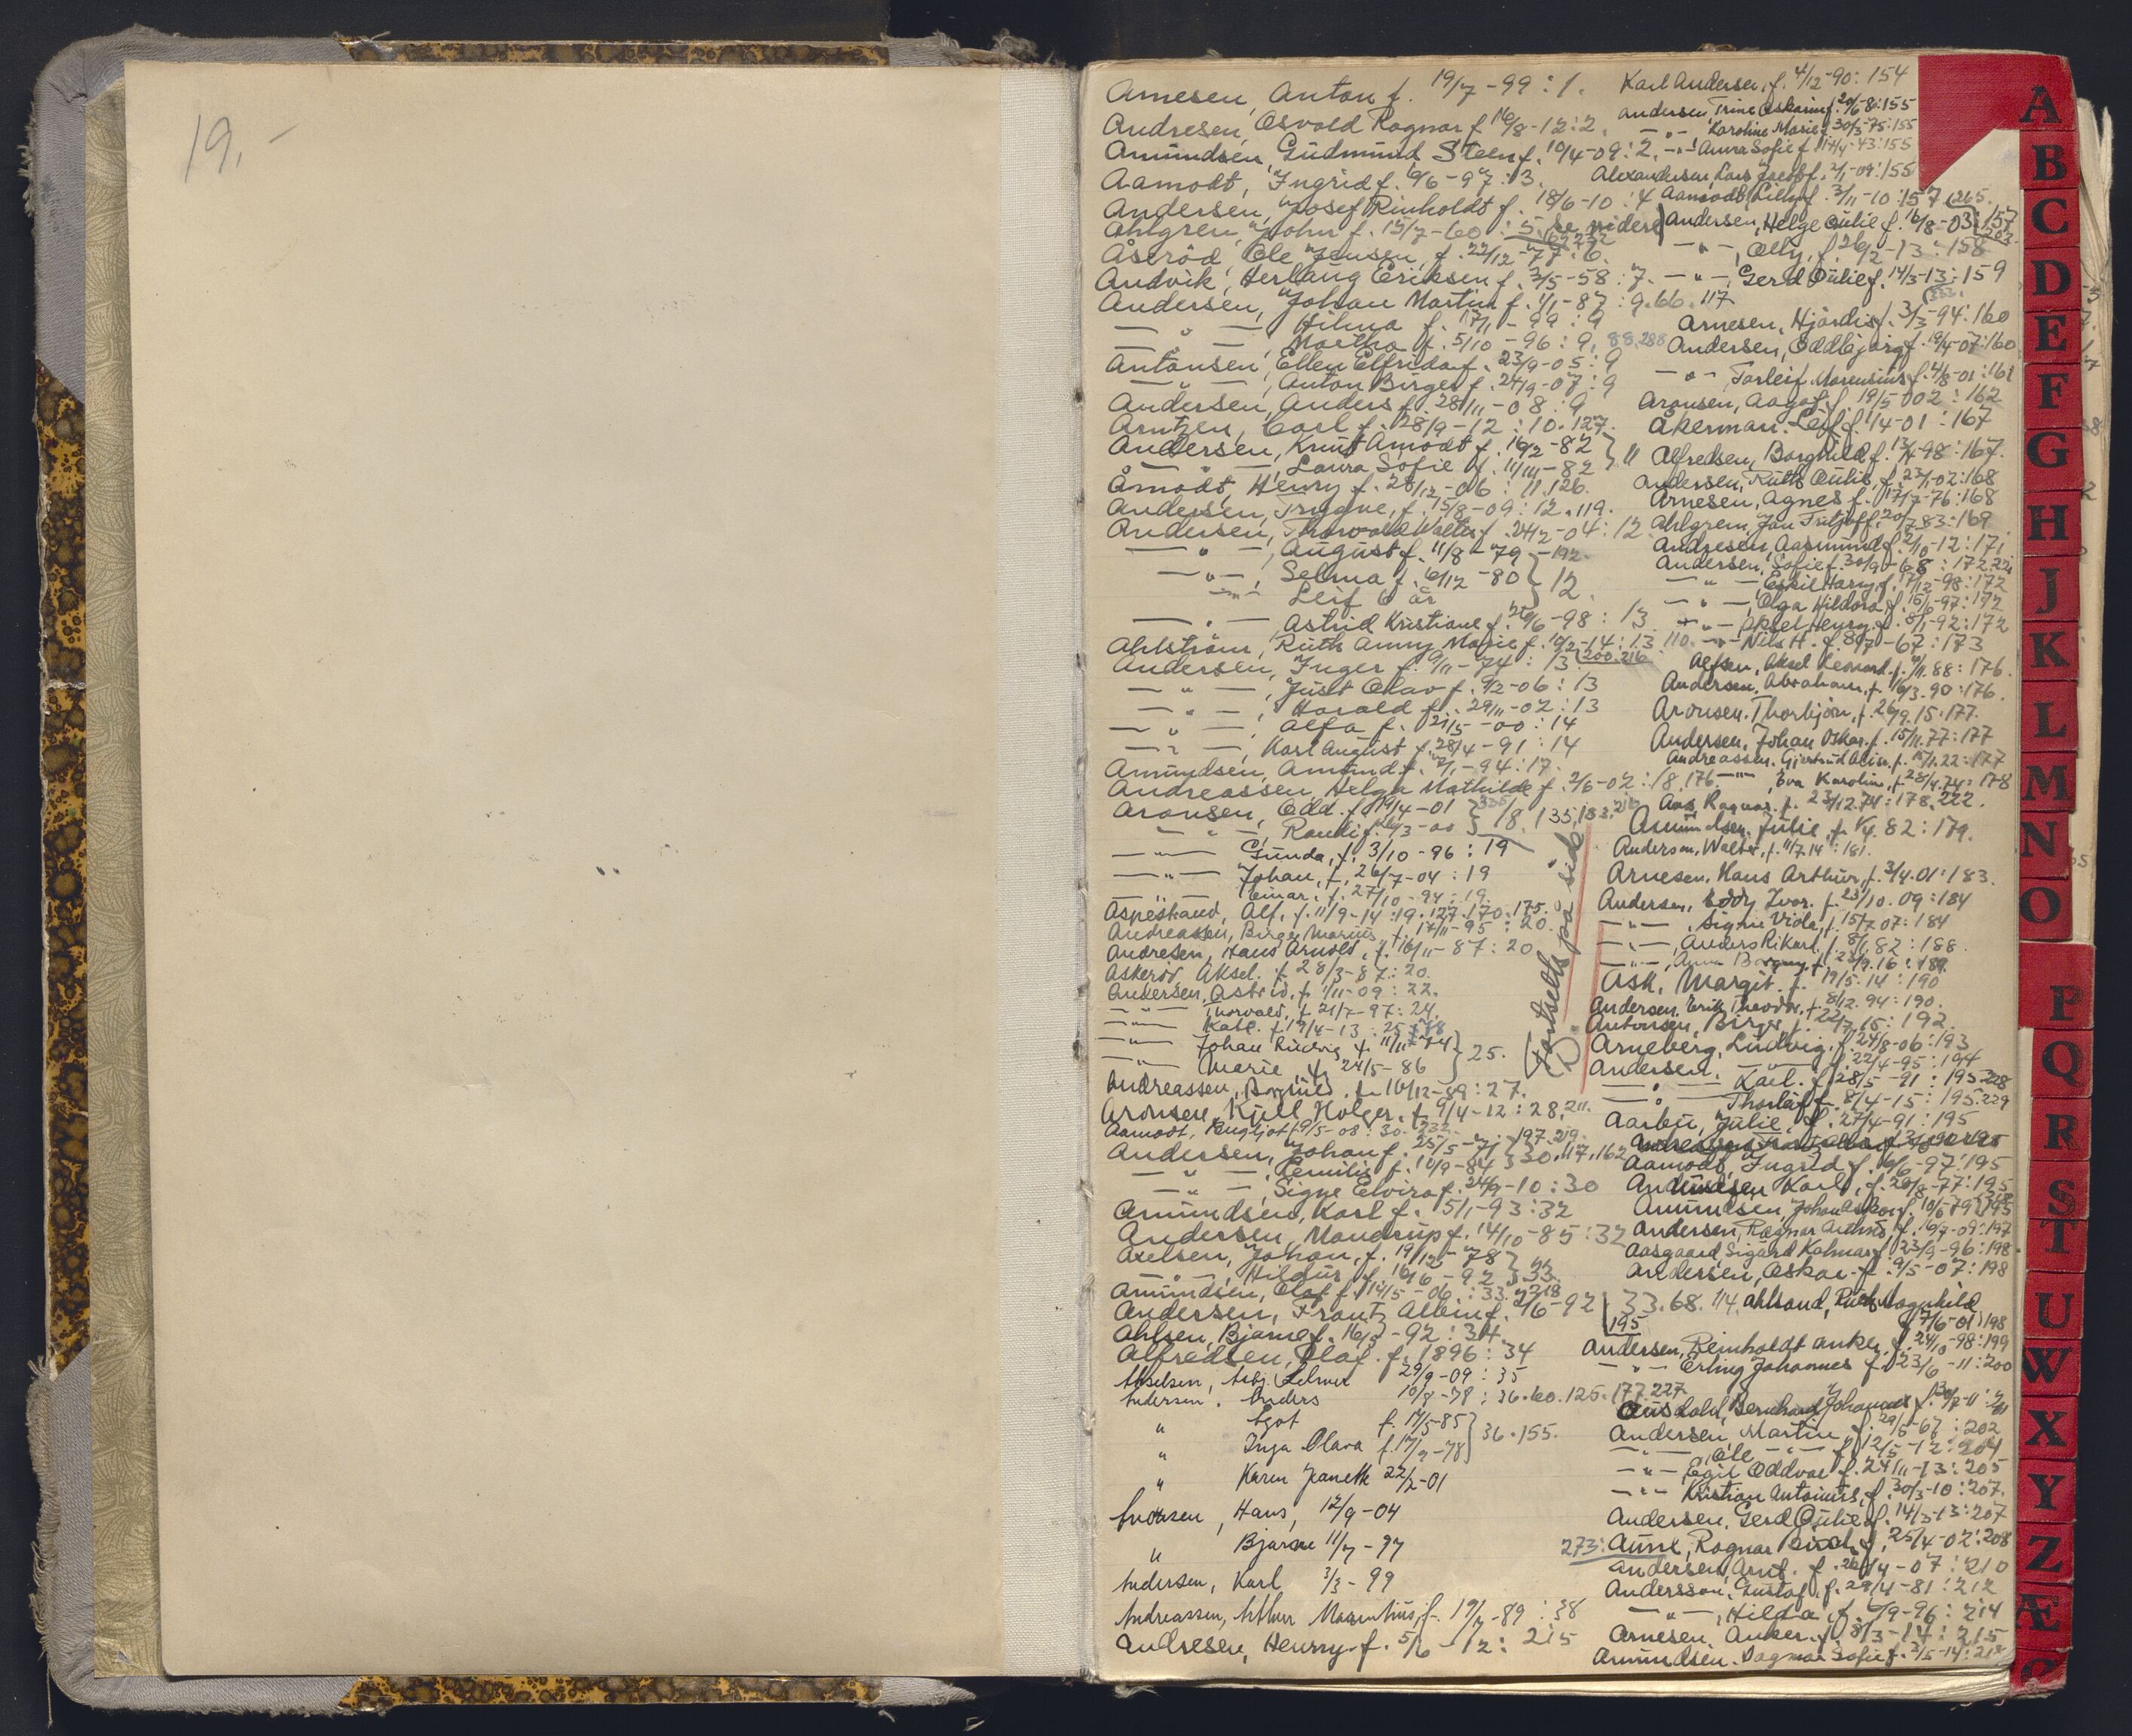 19.-
Arnesen, Anton f. 19/7-99 : 1.
Andresen, Osvald Ragnar f. 16/8-12 : 2.
Amundsen, Gudmund Steen f. 10/4-09 : 2.
Aamodt, Ingrid f. 6/6-97 : 3.
Andersen, Josef Rinholdt f. 18/6-10 : 4
Ahlgren, John f. 15/7-60 : 5. se videre
Åseröd, Ole Jensen, f. 22/12-77 : 6.
Andvik, Herlaug Eriksen f. 3/5-58 : 7.
Andersen, Johan Martin f. 4/1-87 : 9.66.117
— " —, Hilma f. 17/1-99 : 9
— " —, Martha f. 5/10-96 : 9, 88.288
Antonsen, Ellen Elfrida f. 23/9-05 : 9
— " —, Anton Birger f. 24/9-07 : 9
Andersen, Anders f. 28/11-08 : 9
Arntzen, Carl f. 28/9-12 : 10.127.
Andersen, Knut Amodt f. 16/2-82 } 11
— " —, Laura Sofie f. 11/111-82
Åmodt, Henry f. 28/12-06 : 11.126.
Andersen, Trygve, f. 15/8-09 : 12.119.
Andersen, Thorvald Walter f. 24/2-04 : 12
— " —, August f. 11/8-79 -192-
— " —, Selma f. 6/12-80 } 12.
— " — Leif 6 år
— " —, Astrid Kristiane f. 26/6-98 : 13
Ahlström, Ruth Anny Marie f. 10/2-14 : 13 110.
Andersen, Inger f. 9/11-74 : 13 200.216
— " —, Just Olav f. 9/2-06 : 13
— " —, Harald f. 29/11-02 : 13
— " —, Alfa f. 21/5-00 : 14
— " —, Karl August f. 28/4-91 : 14
Amundsen, Amund f. 7/1-94 : 17.
Andreassen, Helga Mathilde f. 2/6-02 : 18.176
Aronsen, Odd. f. 19/4-01 } 18.135.183.
— " —, Randi f. 26/3-00
— " — Gunda, f. 3/10-96 : 19
— " — Johan, f. 26/7-04 : 19
— " — Einar, f. 27/10-94 : 19.
Aspestrand, Alf. f. 11/9-14 : 19.127.170.175.
Andreassen, Birger Marius f. 17/11-95 : 20.
Andresen, Hans Arnold, f. 16/11-87 : 20
Askeröd, Aksel. f. 28/3-87 : 20.
Andersen, Astrid, f. 1/11-09 : 22.
— " — Thorvald, f. 21/7-97 : 24.
— " — Karl. f. 19/4-13 : 25
— " — Johan Ludvig f. 11/11-74 } 25.
— " — Marie, f. 24/5-86
Andreassen, Borghild. f. 16/12-89 : 27.
Aronsen, Kjell Holger. f. 9/4-12 : 28.211.
Aamodt, Engeljot f. 9/5-08 : 30.232.
Andersen, Johan f. 25/5-71 } 197.219. 30.117.162
— " —, Emilie f. 10/9-84
— " —, Signe Elvira f. 24/9-10 : 30
Amundsen, Karl f. 15/1-93 : 32
Andersen, Maudrup f. 14/10-85 : 32
Axelsen, Johan, f. 19/12-78 } 33.
— " —, Hildur f. 16/6-92
Amundsen, Olaf f. 14/5-06 : 33.218
Andersen, Frantz Albin f. 2/6-92 33.68.114. 195
Ahlsen, Bjarne f. 16/5-92 : 34.
Alfredsen, Olaf. f. 1896 : 34
Akselsen, Asbj. Helmer 29/9-09 : 35
Andersen. Anders 10/8-78 : 36.60.125.177.227
" Agot f. 17/5-85 } 36.155.
" Inga Olava f. 17/9-78
" Karen Jeanette 22/2-01
Andersen, Hans, 12/9-04
" Bjarne 11/7-97
Andersen, Karl 3/3-99
Andreassen, Arthur Marentius, f. 19/7-89 : 38
Andresen, Henrry. f. 5/6-12 : 215
Fortsett på side
Karl Andersen, f. 4/12-90 : 154
Andersen Trine Oskarine f. 20/6-8 : 155
— " — Karoline Marie f. 30/3-75 : 155
— " — Anna Sofie f. 14/4-43 : 155
Alexandersen, Lars Jacob f. 2/1-09 : 155
Aamodt, Lilly f. 3/11-10 : 157 (265.
Andersen, Helge Julie f. 16/8-03 : 157 203.
— " —, Olly, f. 26/2-13 : 158
— " —, Gerd Julie f. 14/3-13 : 159
Arnesen, Hjördis f. 3/3-94 : 160
Andersen, Oddbjørg f. 19/4-07 : 160
— " —, Torleif Marensius f. 4/8-01 : 161
Aronsen, Aagot f. 19/5 002 : 162
Åkerman. Leif f. 1/4-01 : 167
Alfredsen, Borghild f. 13/4-98 : 167.
Andersen, Ruth Julie, f. 23/1-02 : 168
Arnesen, Agnes f. 17/7-76 : 168
Ahlgrein, Jan Fritjoff. 20/7 83 : 169
Andresen, Aasmund f. 2/10-12 : 171
Andersen, Sofie f. 30/9-68 : 172.221
— " — Eskil Harry f. 17/12-98 : 172
— " — Olga Hildora f. 15/6-97 : 172
— " — Aksel Henry f. 8/1-92 : 172
— " — Nils H. f. 8/7-67 : 173
Alfsen, Aksel Leonard. f. 9/11 88 : 176.
Andersen, Abraham, f. 16/3.90 : 176.
Aronsen. Thorbjörn, f. 26/9.15.177.
Andersen, Johan Oskar. f. 15/11.77 : 177
Andreassen. Gjertrud Alise. f. 15/1.22 : 177
— " —, Eva Karoline, f. 28/4.74 : 178
Aas, Ragnar. f. 23/12.74 : 178.222.
Amundsen. Julie, f. 1/4.82 : 179.
Anderson, Walter, f. 11/7.14 : 181.
Arnesen. Hans Arthur, f. 3/4.01 : 183.
Andersen, Eddy Ivar. f. 23/10.09 : 184
— " —, Signe Vida, f. 15/7 07 : 184
— " —, Anders Rikard, f. 8/1.82 : 188.
— " —, Anna Borgny, f. 23/9.16 : 189.
Ask, Margit. f. 19/5.14 : 190
Andersen. Erik Theodor, f. 8/12.94 : 190.
Antonsen, Birger, f. 22/7.15 : 192
Arneberg, Ludvig. f. 24/8-06 : 193
Andersen, — " — f. 22/4-95 : 194
— " — Karl. f. 28/5-91 : 195.228
— " — Thorleif f. 8/4-15 : 195.229
Aarbu, Julie, f. 27/4-91 : 195
Aamodt, Ingrid f. 6/6-97 : 195
Andersen Karl, f. 20/8-77 : 195
Amundsen, Johan Oskar f. 10/6-79 : 195
Andersen, Ragnar Arthur, f. 16/7-09 : 197
Aasgaard, Sigurd Kalmar f. 23/9-96 : 198
Andersen, Oskar f. 9/5-07 : 198
Ahlsand, Ruth Magnhild f. 7/6-01 198
Andersen, Reinholdt Anker f. 24/10-98 : 199
— " — Erling Johannes f. 23/6-11 : 200
Ausdahl, Bernhard Johannes f. 30/7-11 : 201
Andersen Martin f. 29/5-67 : 202
— " — Ole — " — f. 12/5-12 : 204
— " — Egil Oddvar f. 24/11-13 : 205
— " — Kristian Antonius, f. 30/3-10 : 207.
Andersen, Gerd Julie f. 14/3-13 : 207
273 : Aune, Ragnar f. 25/4-02 : 208
Andersen, Arnt. f. 26/4-07 : 210
Andersson, Gustaf f. 29/4-81 : 212
— " —, Hilda f. 6/9-96 : 214
Arnesen. Anker. f. 8/3-14 : 215
Amundsen. Dagmar Sofie f. 2/5-14 : 218
A
B
C
D
E
F
G
H
J
K
L
M
N
O
P
Q
R
S
T
U
W
X
Y
Z
Æ